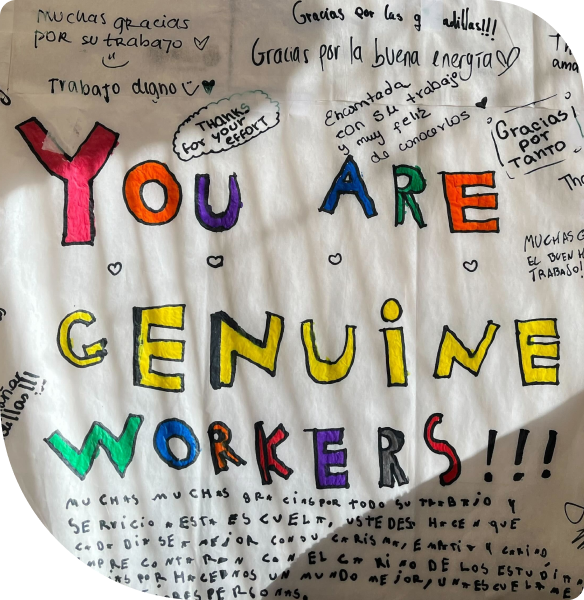 Muchas gracias
por su trabajo
Trabajo digno
Gracias por las g adillas!!!
Gracias por la buena energía
THANKS
FOR YOUR
EFFORT
Encantada
con su trabajo
y muy feliz
de conocerlos
Gracias
POR
TANTO
YOU ARE
MUCHAS G
EL BUEN
TRABAJO!
GENUiNE
WORKERS!!!
MUCHAS MUCHAS GRACIAS POR TODO SU TRABAJO Y
SERVICIO A ESTA ESCUELA, USTEDES HACEN QUE
CADA DIA SEA MEJOR CON SU CARISMA, EMPATIA Y CARIÑO
MPRE CONTARAN CON EL CARIÑO DE LOS ESTUDIA
POR HACERNOS UN MUNDO MEJOR, UNA ESCUELA ME
PERSONAS.